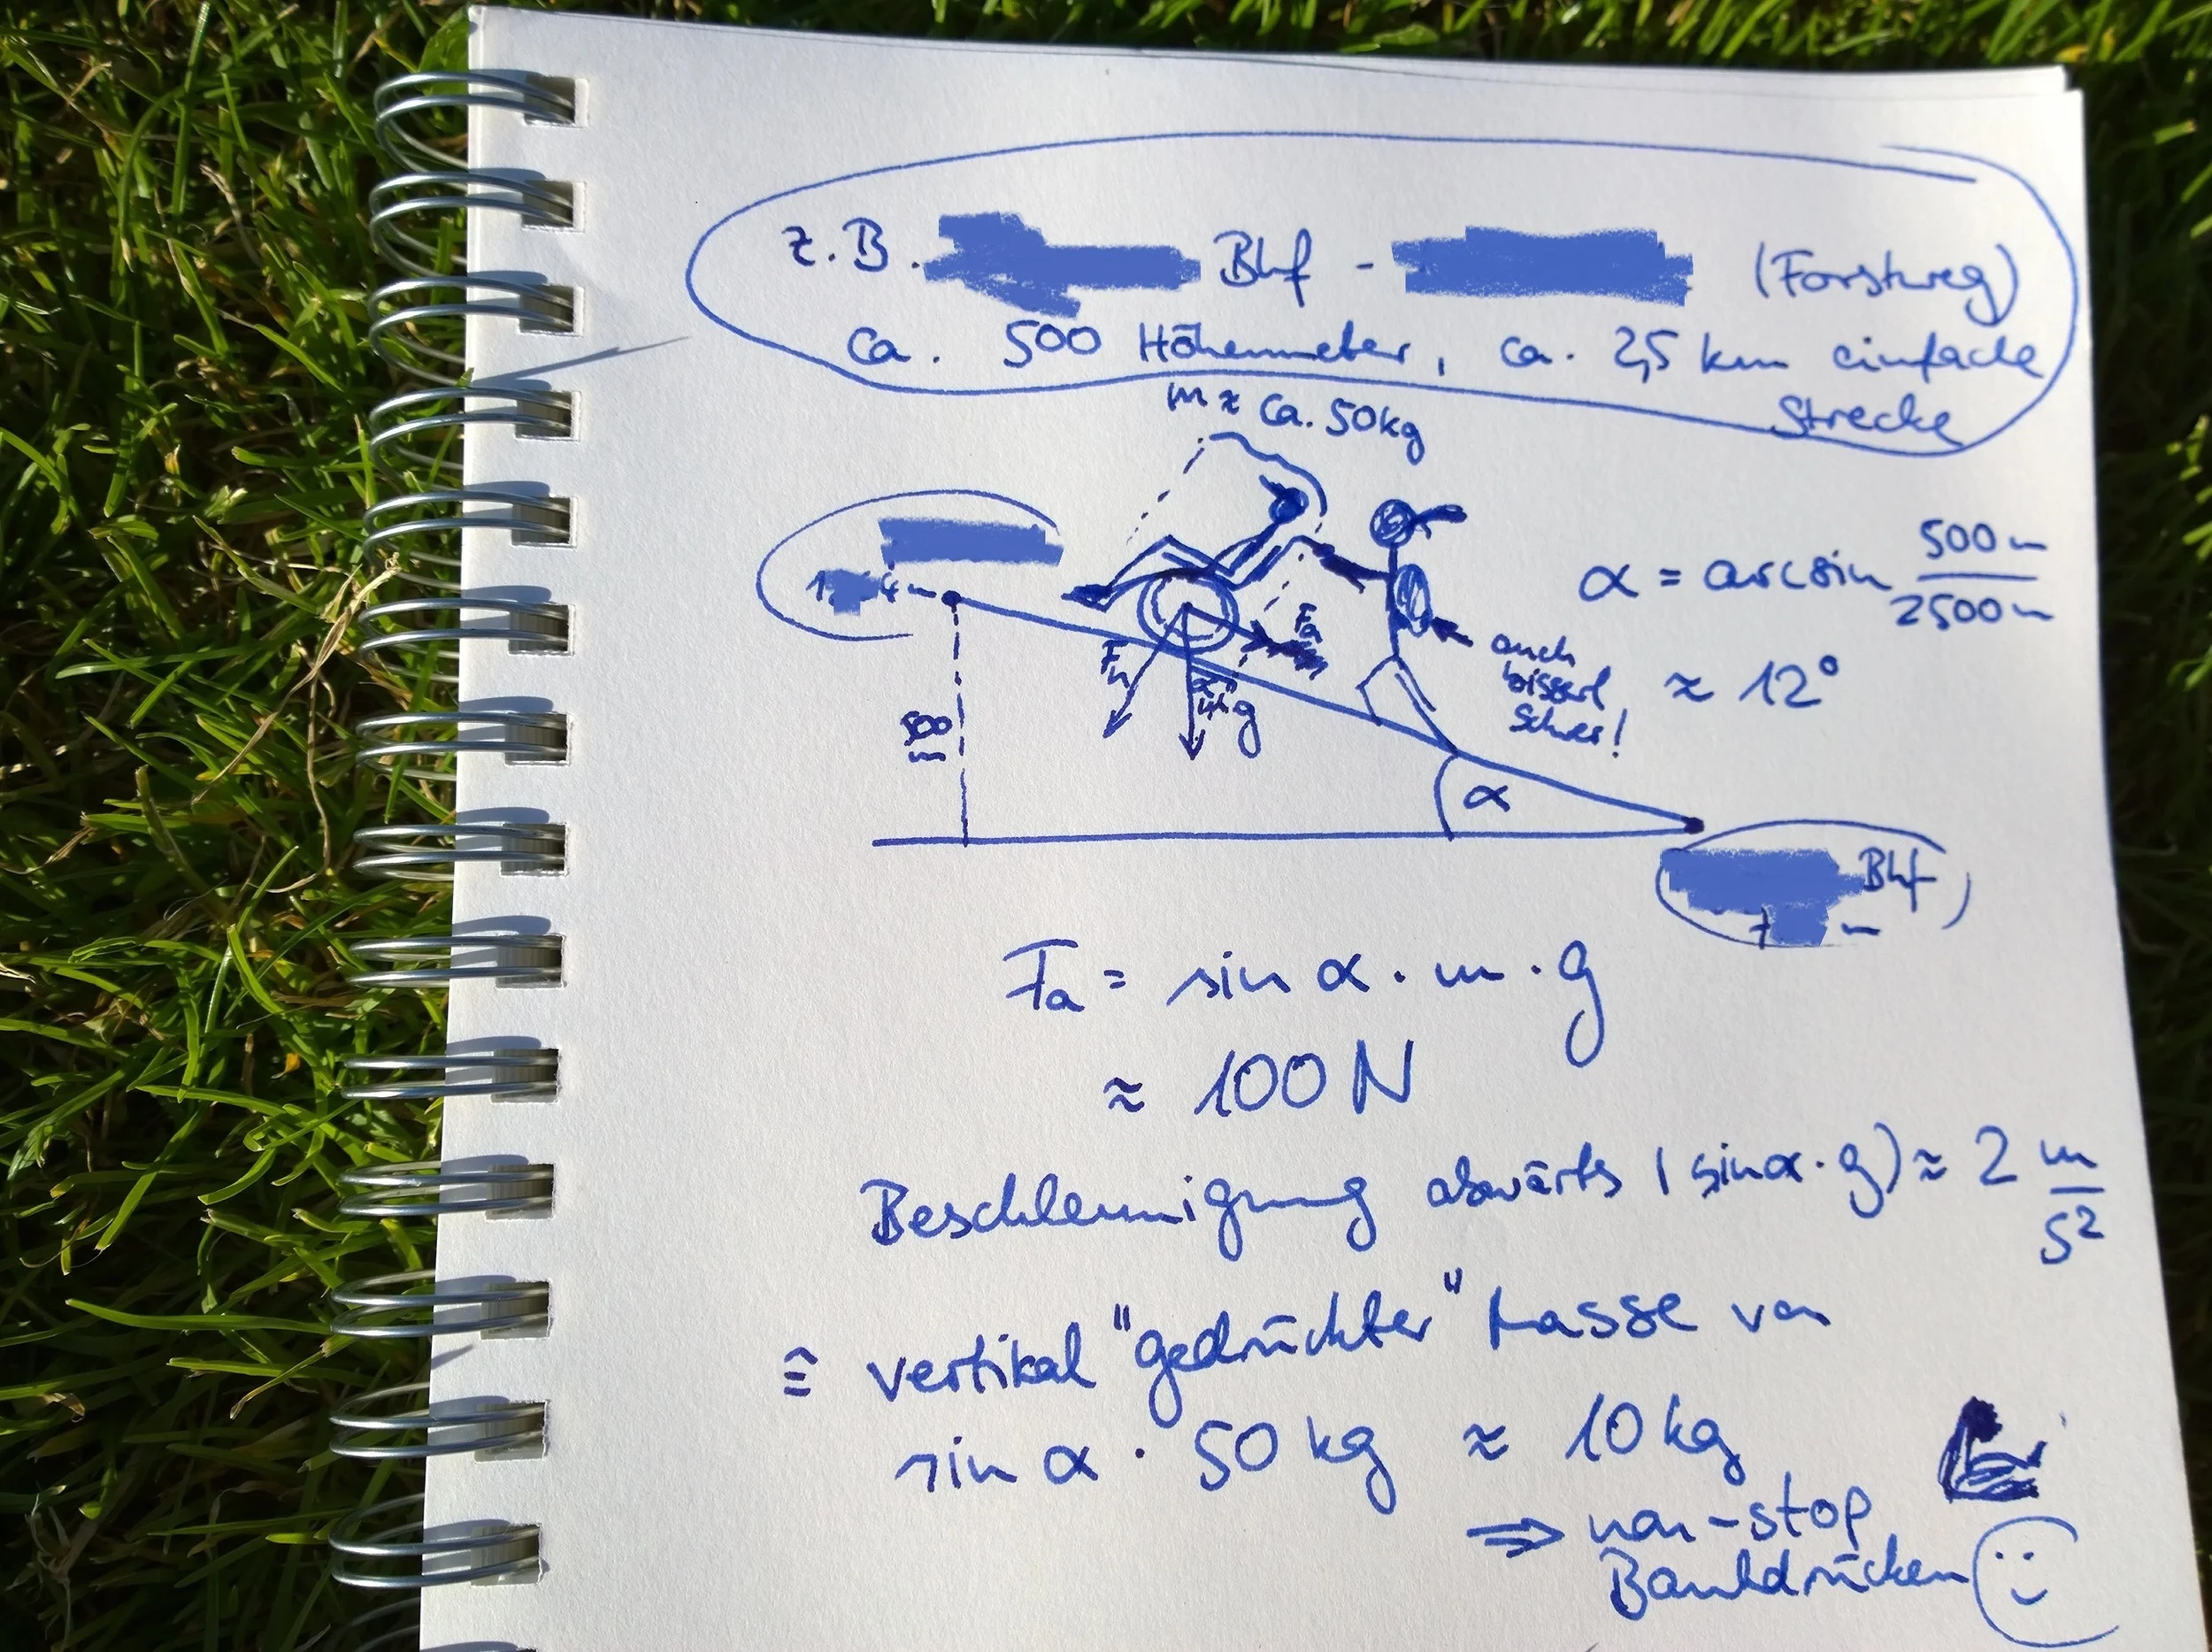 z.B. Bhf - (Forstweg)
ca. 500 Höhenmeter, ca. 2,5 km einfache
Strecke
m ≈ ca. 50kg
500
m
F_n
F_a
g
auch
bisserl
schwer!
α = arcsin 500m / 2500m
≈ 12°
α
Bhf
7 m
F_a = sin α · m · g
≈ 100 N
Beschleunigung abwärts (sinα · g) ≈ 2 m/s²
≙ vertikal "gedrückter" Masse von
sin α · 50 kg ≈ 10 kg
⇒ non-stop
Bankdrücken